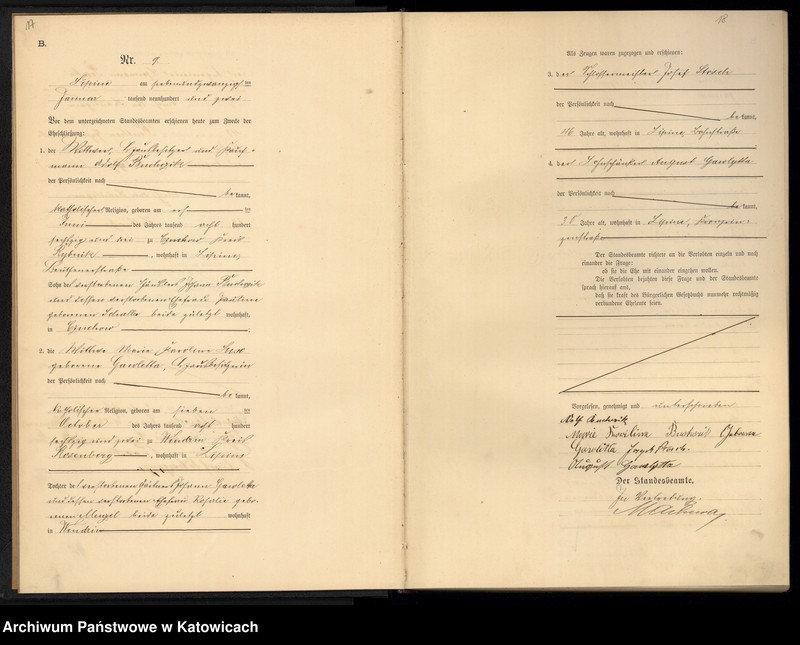 17
B.
Nr. 9.
Lipine am siebenundzwanzigsten
Januar tausend neunhundert und zwei
Vor dem unterzeichneten Standesbeamten erschienen heute zum Zwecke der
Eheschließung:
1. der Wittwer, Hausbesitzer und Kauf=
mann Adolf
der Persönlichkeit nach
be kannt,
katholischer Religion, geboren am
Juni des Jahres tausend acht hundert
sechzig und zu Kreis
Rybnik, wohnhaft in Lipine,
Beuthenerstraße
Sohn des verstorbenen Johann
und dessen verstorbenen Ehefrau Pauline
geborenen beide zuletzt wohnhaft
in
2. die Wittwe Marie Karoline
geborene Gawletta, Hausbesitzerin
der Persönlichkeit nach
be kannt,
katholischer Religion, geboren am sieben ten
October des Jahres tausend acht hundert
sechzig und zwei zu Wendrin Kreis
Rosenberg, wohnhaft in Lipine
Tochter des verstorbenen Gärtners Johann Gawletta
und dessen verstorbenen Ehefrau Rosalie gebo=
renen Menzel beide zuletzt wohnhaft
in Wendrin
18
Als Zeugen waren zugezogen und erschienen:
3. der Schlossermeister Josef
der Persönlichkeit nach
be kannt,
46 Jahre alt, wohnhaft in Lipine, Bahnstraße
4. der August Gawlytta
der Persönlichkeit nach
be kannt,
38 Jahre alt, wohnhaft in Lipine, Kronprin=
zenstraße
Der Standesbeamte richtete an die Verlobten einzeln und nach
einander die Frage:
ob sie die Ehe mit einander eingehen wollen.
Die Verlobten bejahten diese Frage und der Standesbeamte
sprach hierauf aus,
daß sie kraft des Bürgerlichen Gesetzbuchs nunmehr rechtmäßig
verbundene Eheleute seien.
Vorgelesen, genehmigt und unterschrieben
Marie Geborene
Gawletta
August Gawlytta
Der Standesbeamte.
In Vertretung.
Archiwum Państwowe w Katowicach